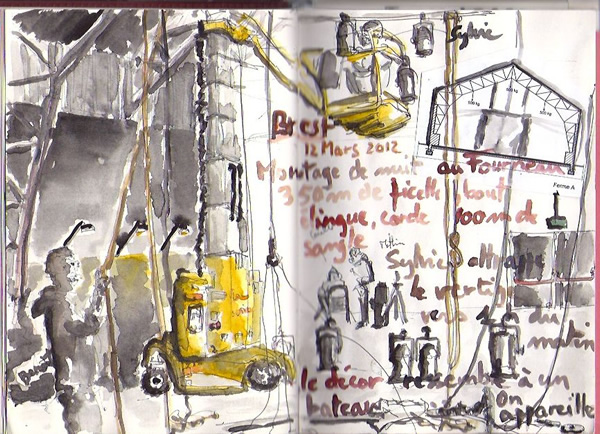 Sylvie
Brest
12 Mars 2012
Montage de nuit au Fourneau
350m de ficelle, bout
élingue, corde 100m de
sangle
Ferme A
Sylvie attrape
le vertige
vers 1h du
matin
le décor ressemble à un
bateau
on
appareille